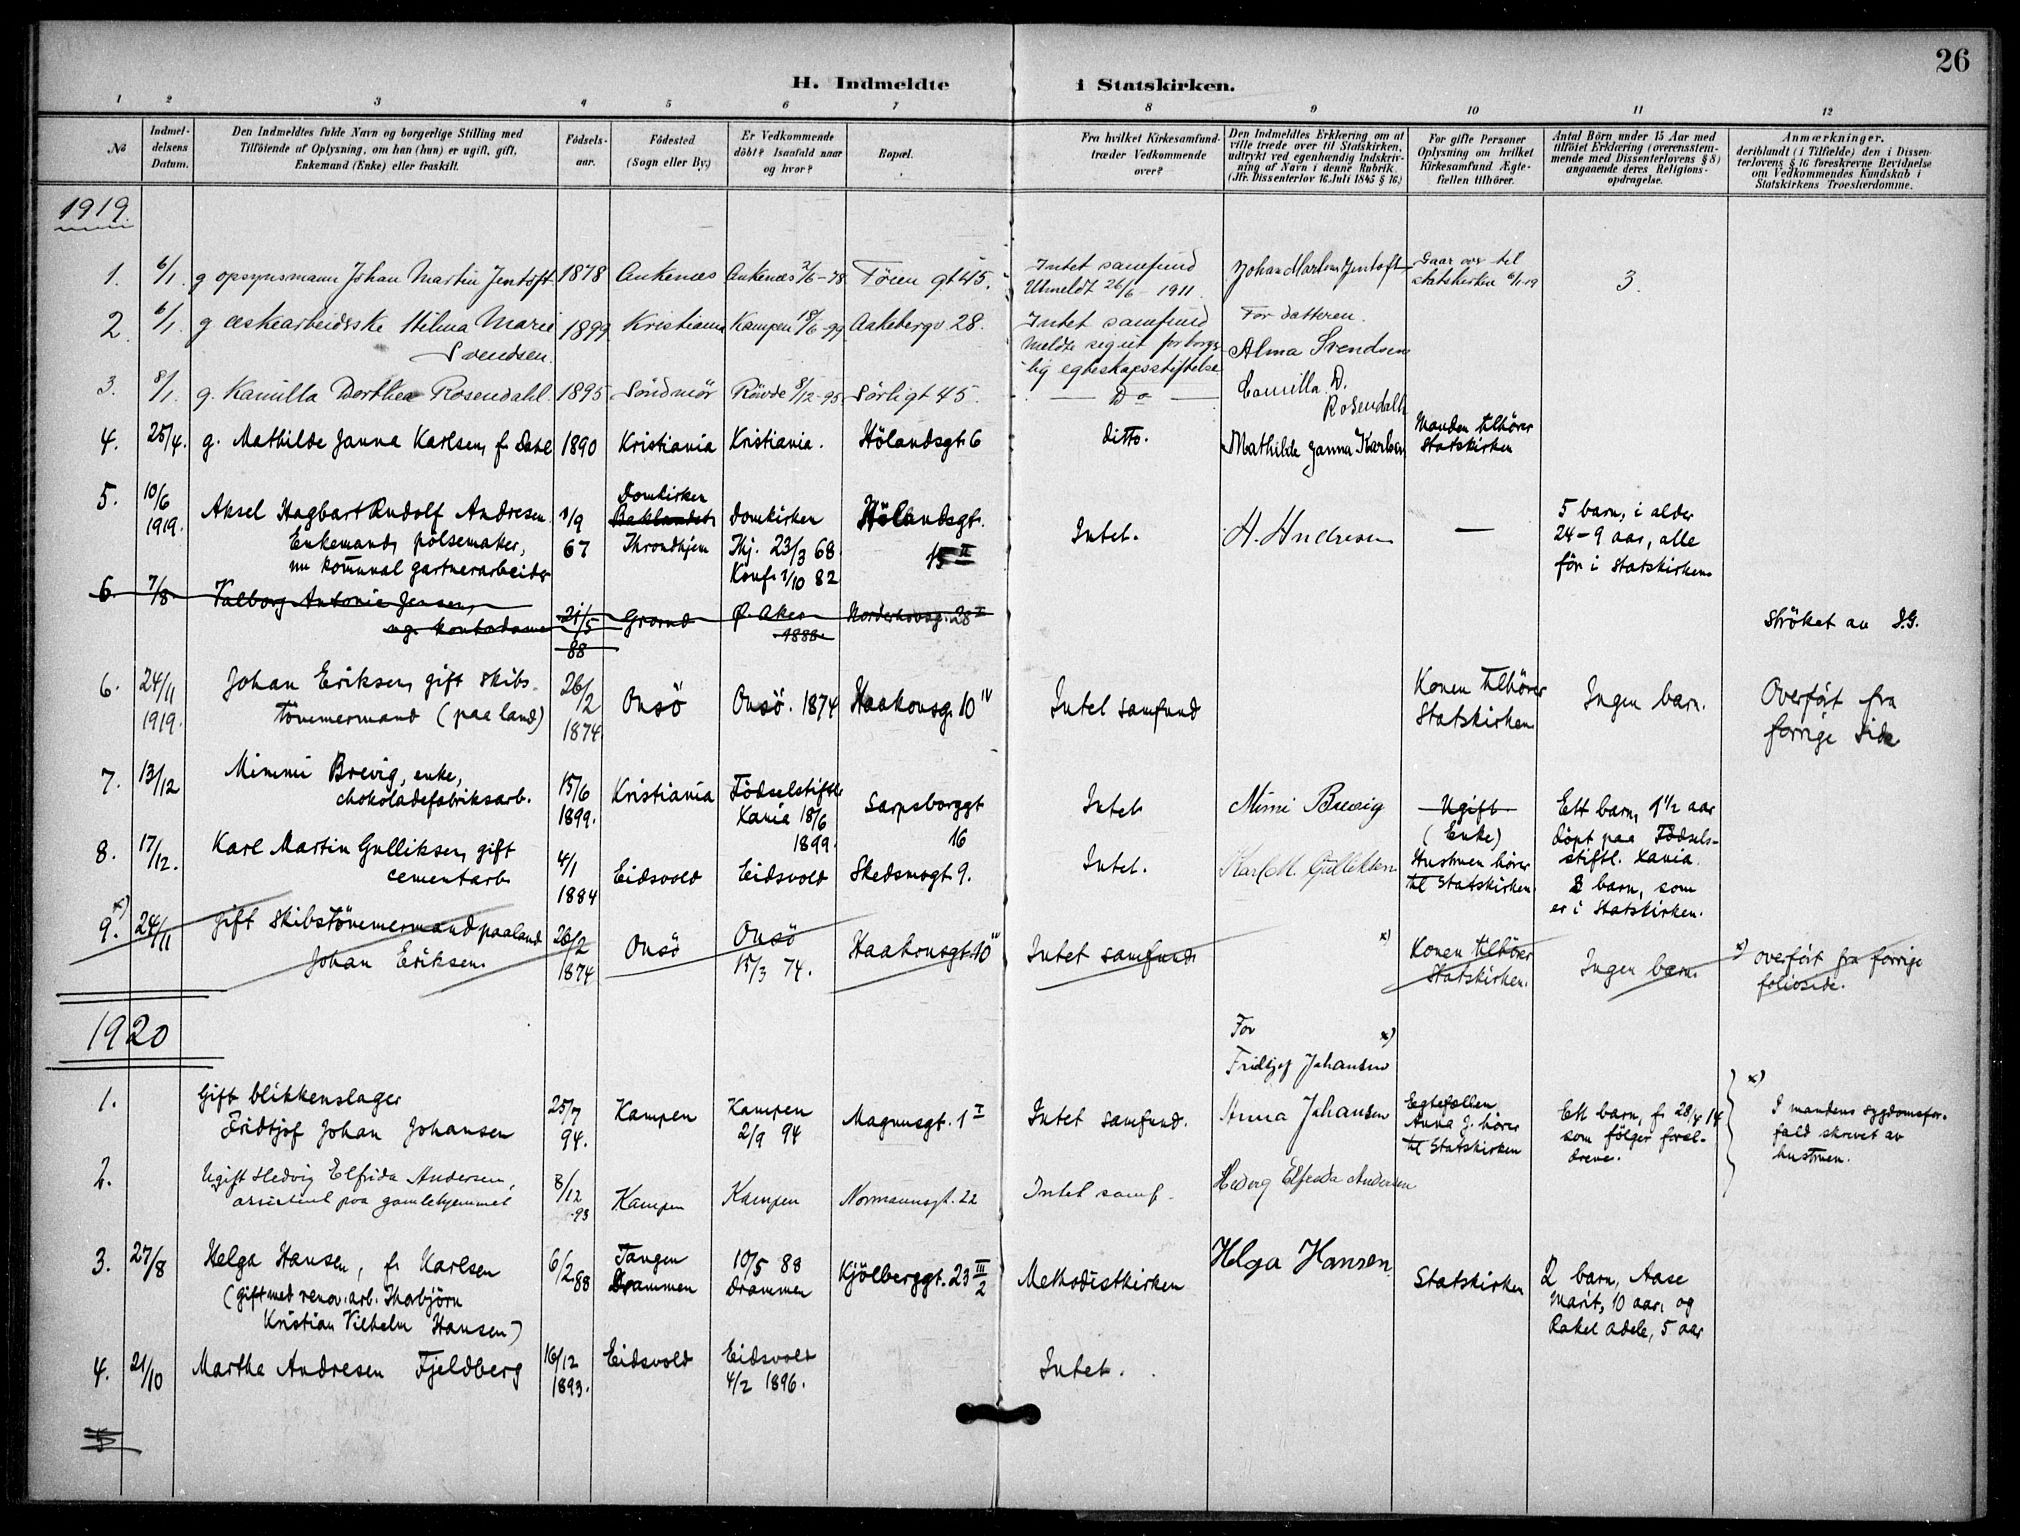 26
H. Indmeldte i Statskirken.
1 2 3 4 5 6 7 8 9 10 11 12
No
Indmel-
delsens
Datum.
Den Indmeldtes fulde Navn og borgerlige Stilling med
Tilföiende af Oplysning, om han (hun) er ugift, gift,
Enkemand (Enke) eller fraskilt.
Födsels-
aar.
Födested
(Sogn eller By.)
Er Vedkommende
döbt? Isaafald naar
og hvor?
Bopæl.
Fra hvilket Kirkesamfund
træder Vedkommende
over?
Den Indmeldtes Erklæring om at
ville træde over til Statskirken,
udtrykt ved egenhændig Indskriv-
ning af Navn i denne Rubrik.
(Jfr. Dissenterlov 16. Juli 1845 § 16.)
For gifte Personer
Oplysning om hvilket
Kirkesamfund Ægte-
fællen tilhörer.
Antal Börn under 15 Aar med
tilföiet Erklæring (overensstem-
mende med Dissenterlovens § 8)
angaaende deres Religions-
opdragelse.
Anmærkninger.
deriblandt (i Tilfælde) den i Dissen-
terlovens § 16 foreskrevne Bevidnelse
om Vedkommendes Kundskab i
Statskirkens Troeslærdomme.
1919.
1. 6/1. g opsynsmann Johan Martin Jentoft 1878 Ankenes Ankenes 2/6-78 Töien gt 45.
Intet samfund
Utmeldt 26/6 - 1911.
Johan Martin Jentoft
Gaar over til
statskirken 6/1-19
3.
2. 6/1. g æskearbeiderske Hilma Marie
Svendsen.
1899 Kristiania Kampen 18/6-99 Aakebergv 28.
Intet samfund
Meldte sig ut for borger-
lig egteskapsstiftelse
For datteren.
Alma Svendsen
3. 8/1. g. Kamilla Dorthea Rosendahl. 1895 Söndmör Rövde 8/12-95 Sörligt 45.
— Do —
Camilla D.
Rosendahl
4. 25/4. g. Mathilde Janna Karlsen, f. Dahl 1890 Kristiania Kristiania. Hölandsgt. 6
ditto.
Mathilde Janna Karlsen
Manden tilhörer
Statskirken
5. 10/6
1919.
Aksel Hagbart Rudolf Andresen
Enkemand, pölsemaker,
nu kommunal gartnerarbeider
1/9
67
Domkirken
Baklandet,
Throndhjem
Domkirken
Thj. 23/3 68.
Konf. 1/10 82
Hölandsgt.
15 II
Intet.
A. Andresen
—
5 barn, i alder
24-9 aar, alle
för i Statskirken.
6. 7/8 Valborg Antonie Jensen,
ug. kontordame
21/5
88
Grorud
Ø. Aker
1888.
Nordenhovsg. 28 II
Ströket av S.G.
6. 24/11
1919.
Johan Eriksen, gift skibs-
tömmermand (paa land)
26/2
1874
Onsö Onsö. 1874 Haakonsg. 10 IV
Intet samfund
Konen tilhörer
Statskirken.
Ingen barn.
Overfört fra
forrige side
7. 13/12
Mimmi Brevig, enke,
chokoladefabriksarb.
15/6
1899.
Kristiania
Födselstiftl.
Kania 18/6
1899.
Sarpsborggt
16
Intet
Mimi Brevig
Ugift
(Enke)
Ett barn, 1 1/2 aar
döpt paa Födsels-
stiftl. Kania.
8. 17/12.
Karl Martin Gulliksen, gift
cementarb.
4/1
1884
Eidsvold Eidsvold Skedsmogt. 9.
Intet.
Karl M. Gulliksen
Hustruen hörer
til Statskirken.
2 barn, som
er i Statskirken.
9. x) 24/11
Gift skibstömmermand paaland
Johan Eriksen.
26/2
1874
Onsö
Onsö
15/3 74.
Haakonsgt. 10 IV
Intet samfund.
x)
Konen tilhörer
Statskirken.
Ingen barn.
x) overfört fra forrige
folioside.
1920
1.
Gift blikkenslager
Fridtjof Johan Johansen
25/7
94.
Kampen
Kampen
2/9 94
Magnusgt. 1 I
Intet samfund.
For x)
Fridtjof Johansen
Anna Johansen
Egtefællen
Anna J. hörer
til Statskirken
Ett barn, f. 28/4 14
som fölger foræl-
drene.
x)
I mandens sygdomsfor-
fald skrevet av
hustruen.
2.
Ugift Hedvig Elfrida Andersen,
assistent paa gamlehjemmet
3/12
93
Kampen Kampen Normannsgt. 22
Intet samf.
Hedvig Elfrida Andersen
3. 27/8
Helga Hansen, f. Karlsen
(gift med renov. arb. Thorbjörn
Kristian Vilhelm Hansen)
6/2 88
Tangen
Drammen
10/5 88
Drammen
Kjölberggt. 23 III/2
Methodistkirken
Helga Hansen
Statskirken
2 barn, Aase
Marit, 10 aar, og
Rakel Adele, 5 aar
4. 21/10
Martha Andresen Fjeldberg
16/12
1893.
Eidsvold
Eidsvold
4/2 1896.
Intet.
5